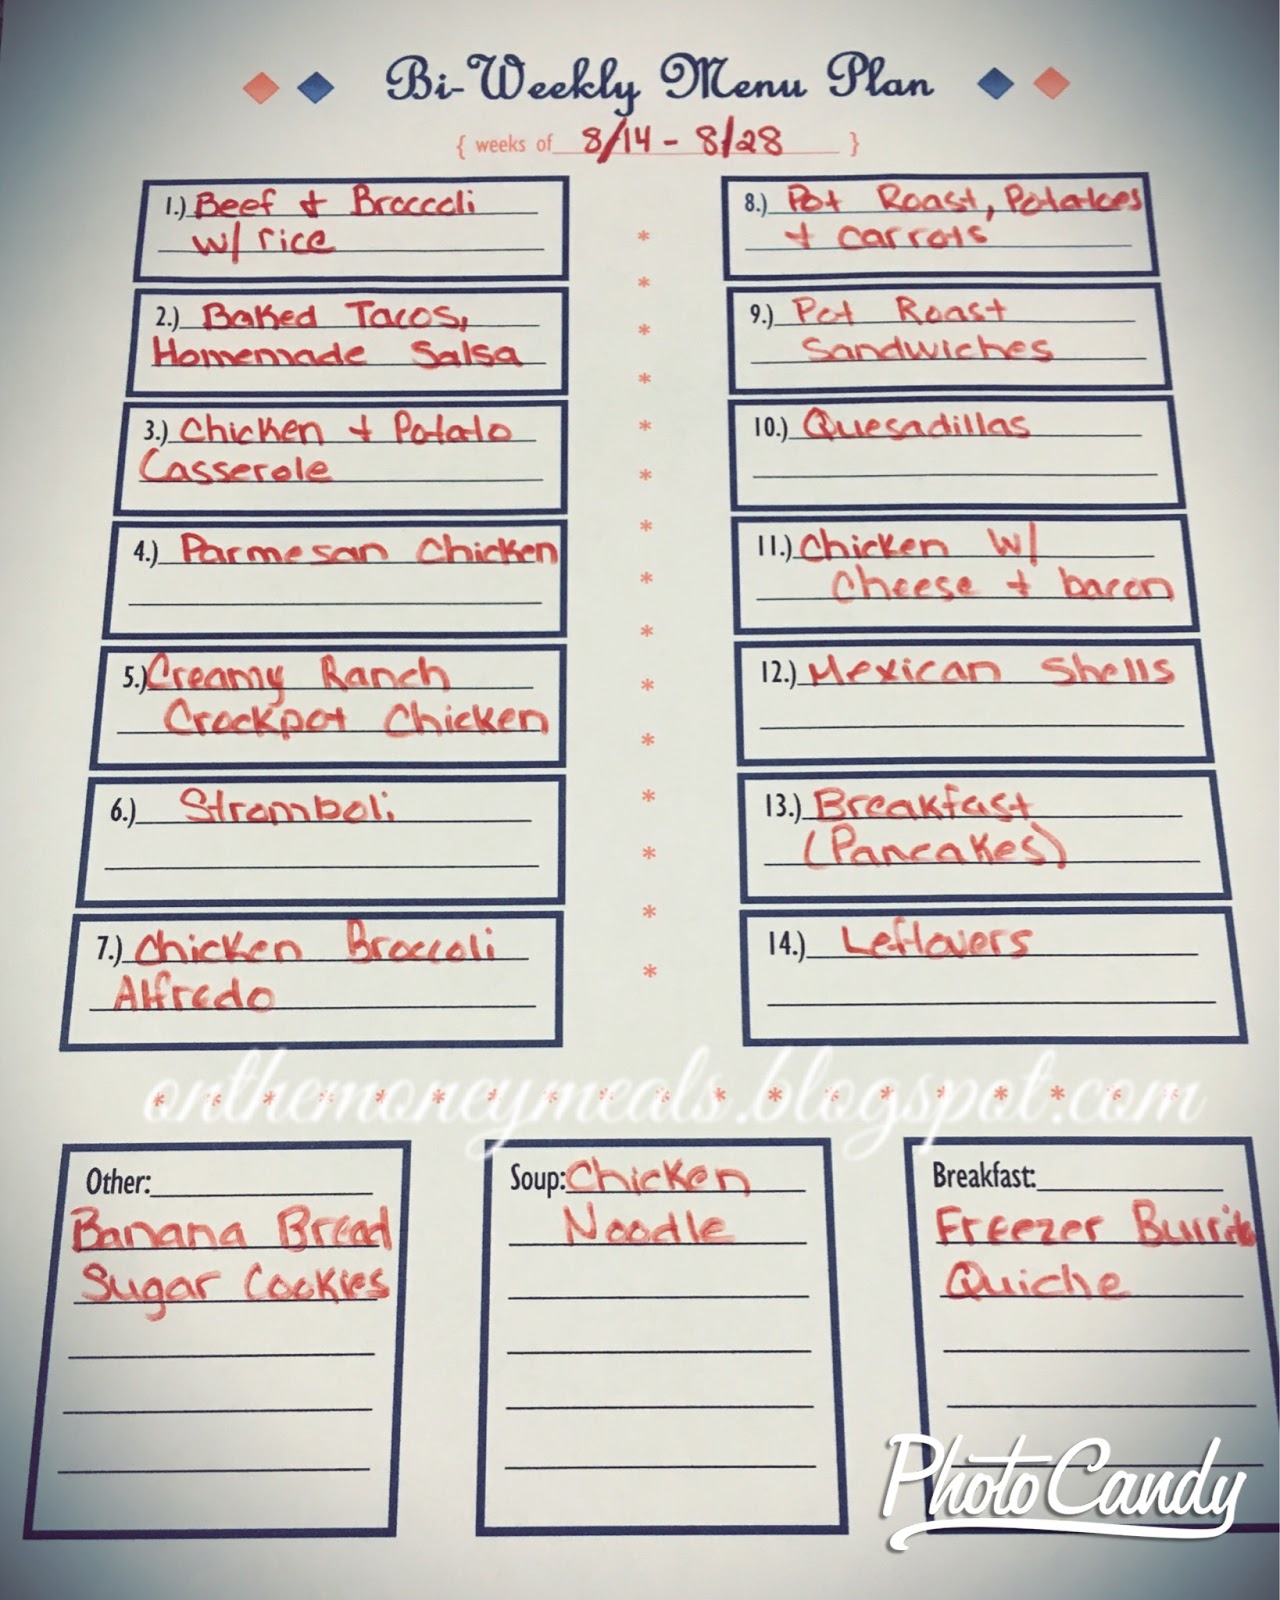 Bi-Weekly Menu Plan
{ weeks of 8/14 - 8/28 }
1.) Beef + Broccoli
w/ rice
2.) Baked Tacos,
Homemade Salsa
3.) Chicken + Potato
Casserole
4.) Parmesan Chicken
5.) Creamy Ranch
Crockpot Chicken
6.) Stromboli
7.) Chicken Broccoli
Alfredo
8.) Pot Roast, Potatoes
+ carrots
9.) Pot Roast
Sandwiches
10.) Quesadillas
11.) Chicken w/
Cheese + bacon
12.) Mexican Shells
13.) Breakfast
(Pancakes)
14.) Leftovers
onthemoneymeals.blogspot.com
Other:
Banana Bread
Sugar Cookies
Soup: Chicken
Noodle
Breakfast:
Freezer Burrito
Quiche
PhotoCandy